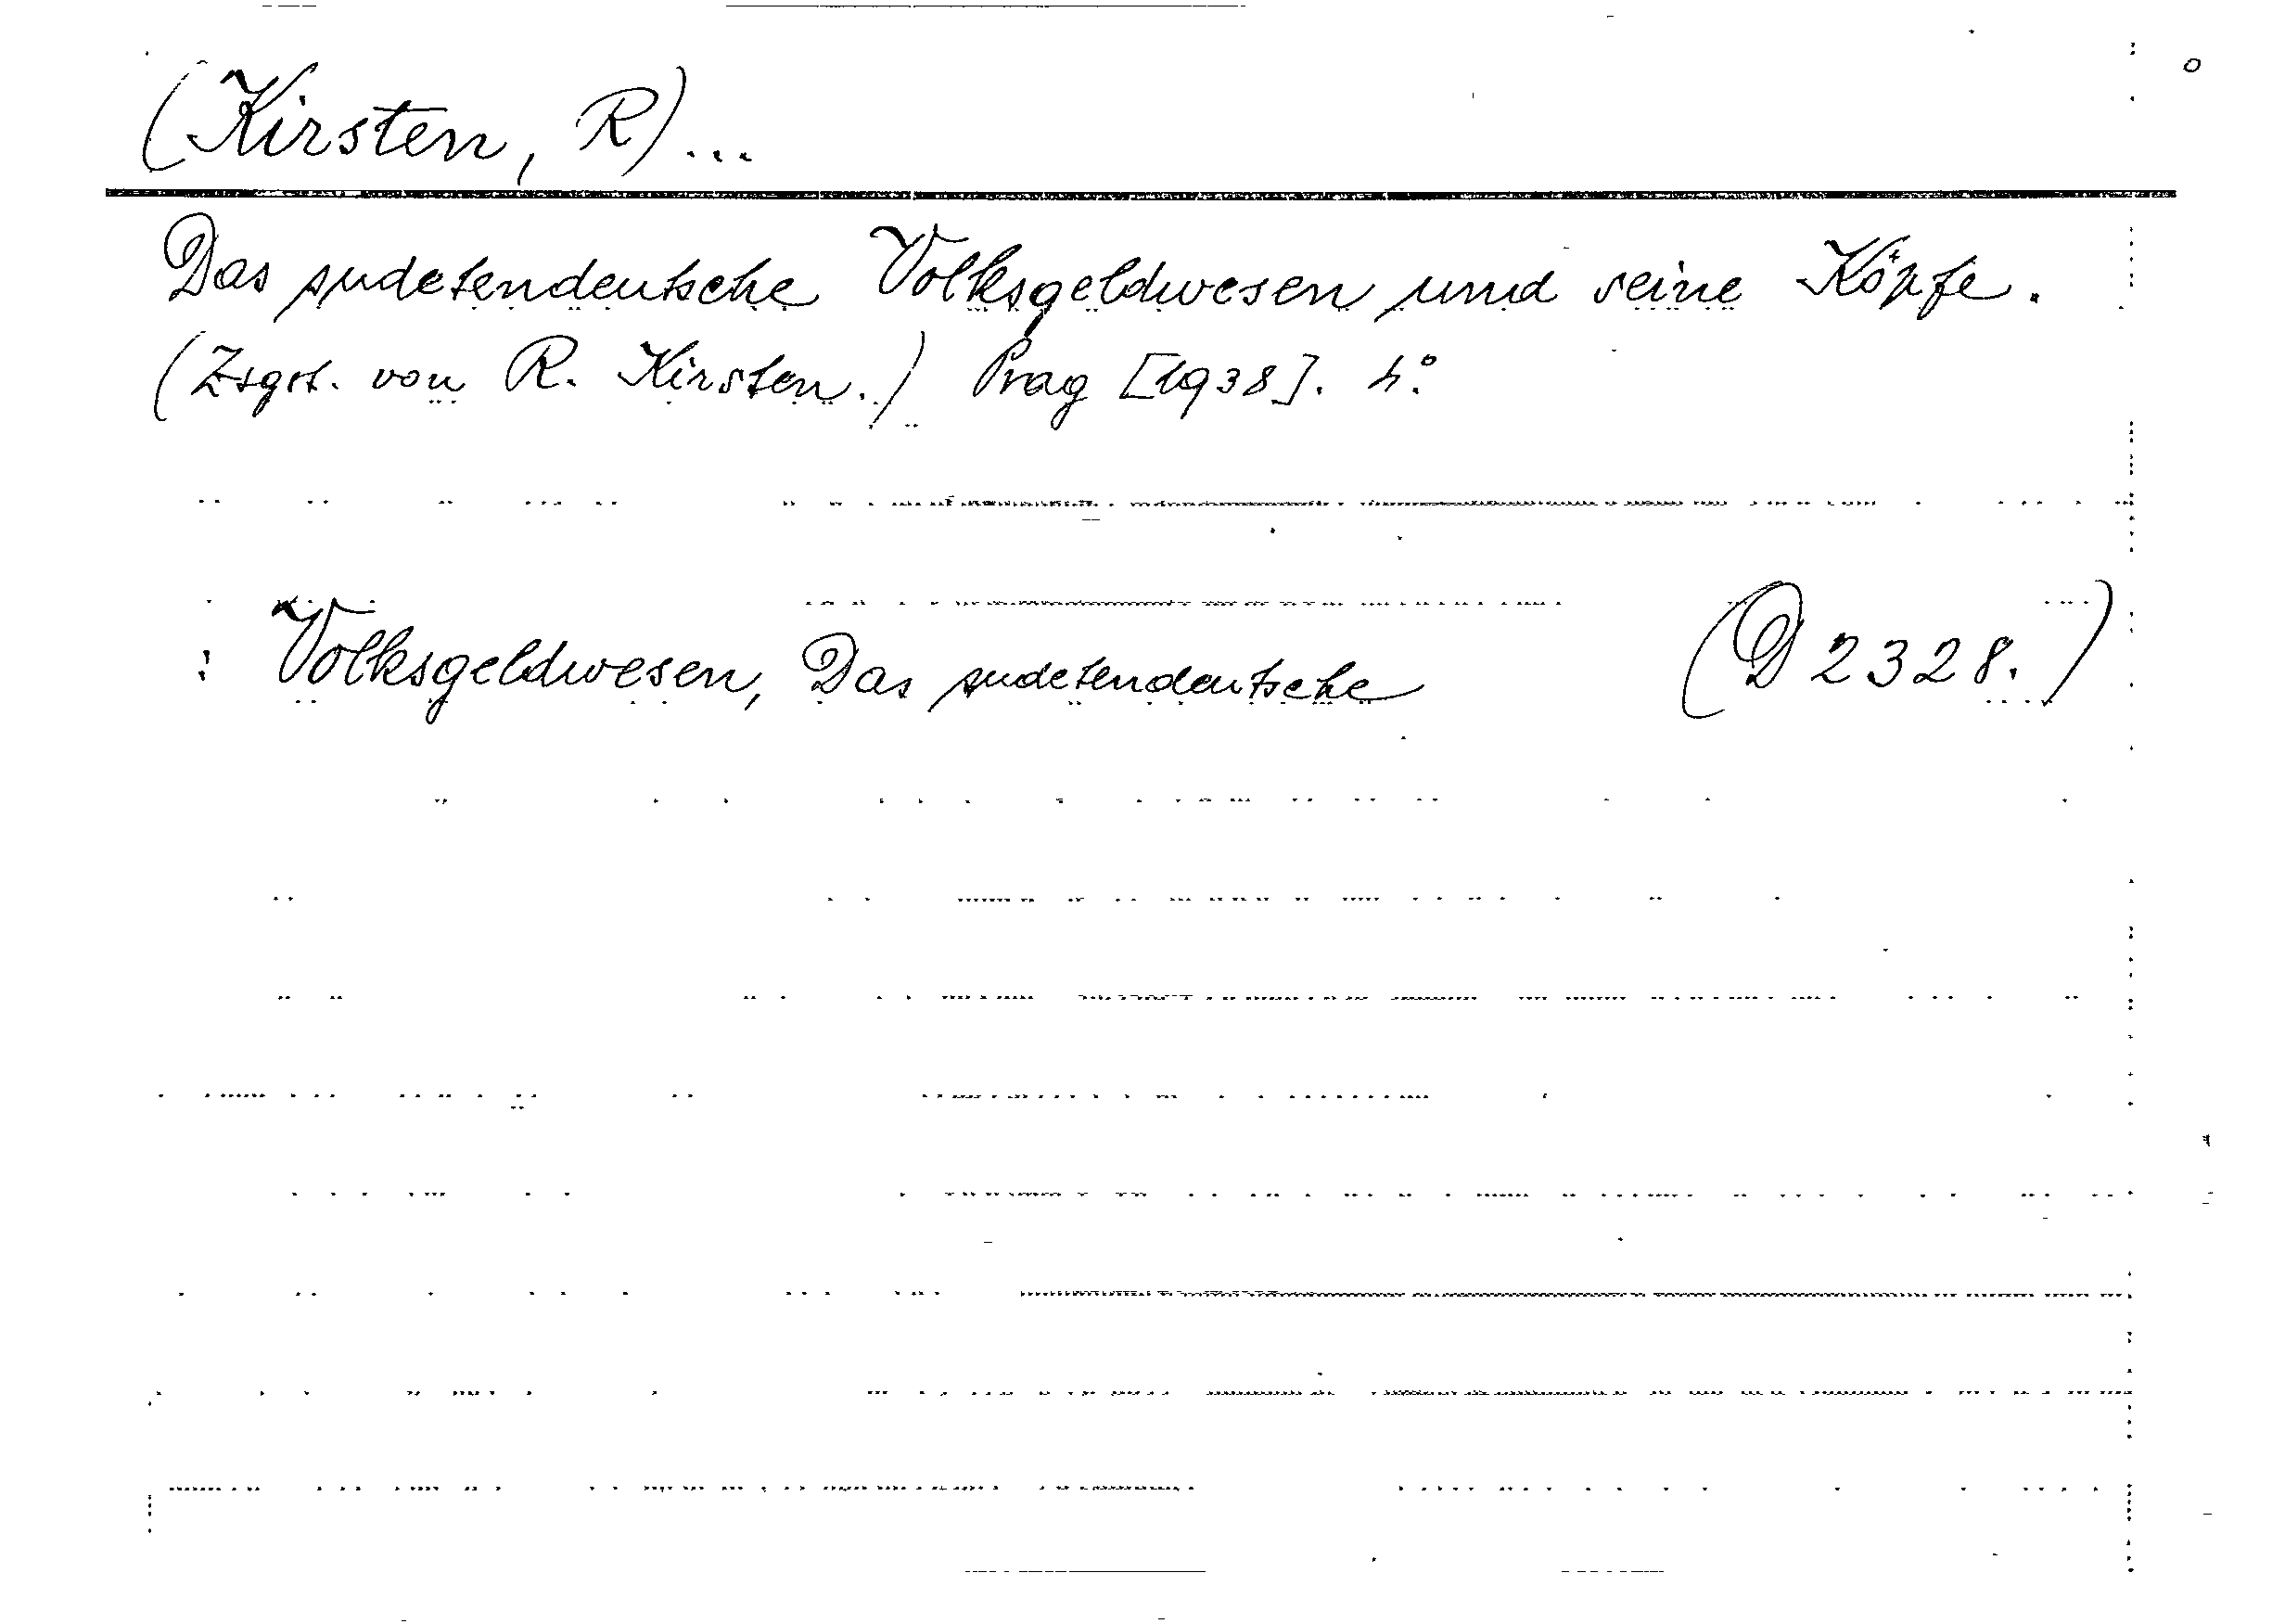 (Kirsten, R)...
Das sudetendeutsche Volksgeldwesen und seine Köpfe.
(Zsgst. von R. Kirsten.) Prag [1938]. 4°.
: Volksgeldwesen, Das sudetendeutsche (D 2328.)